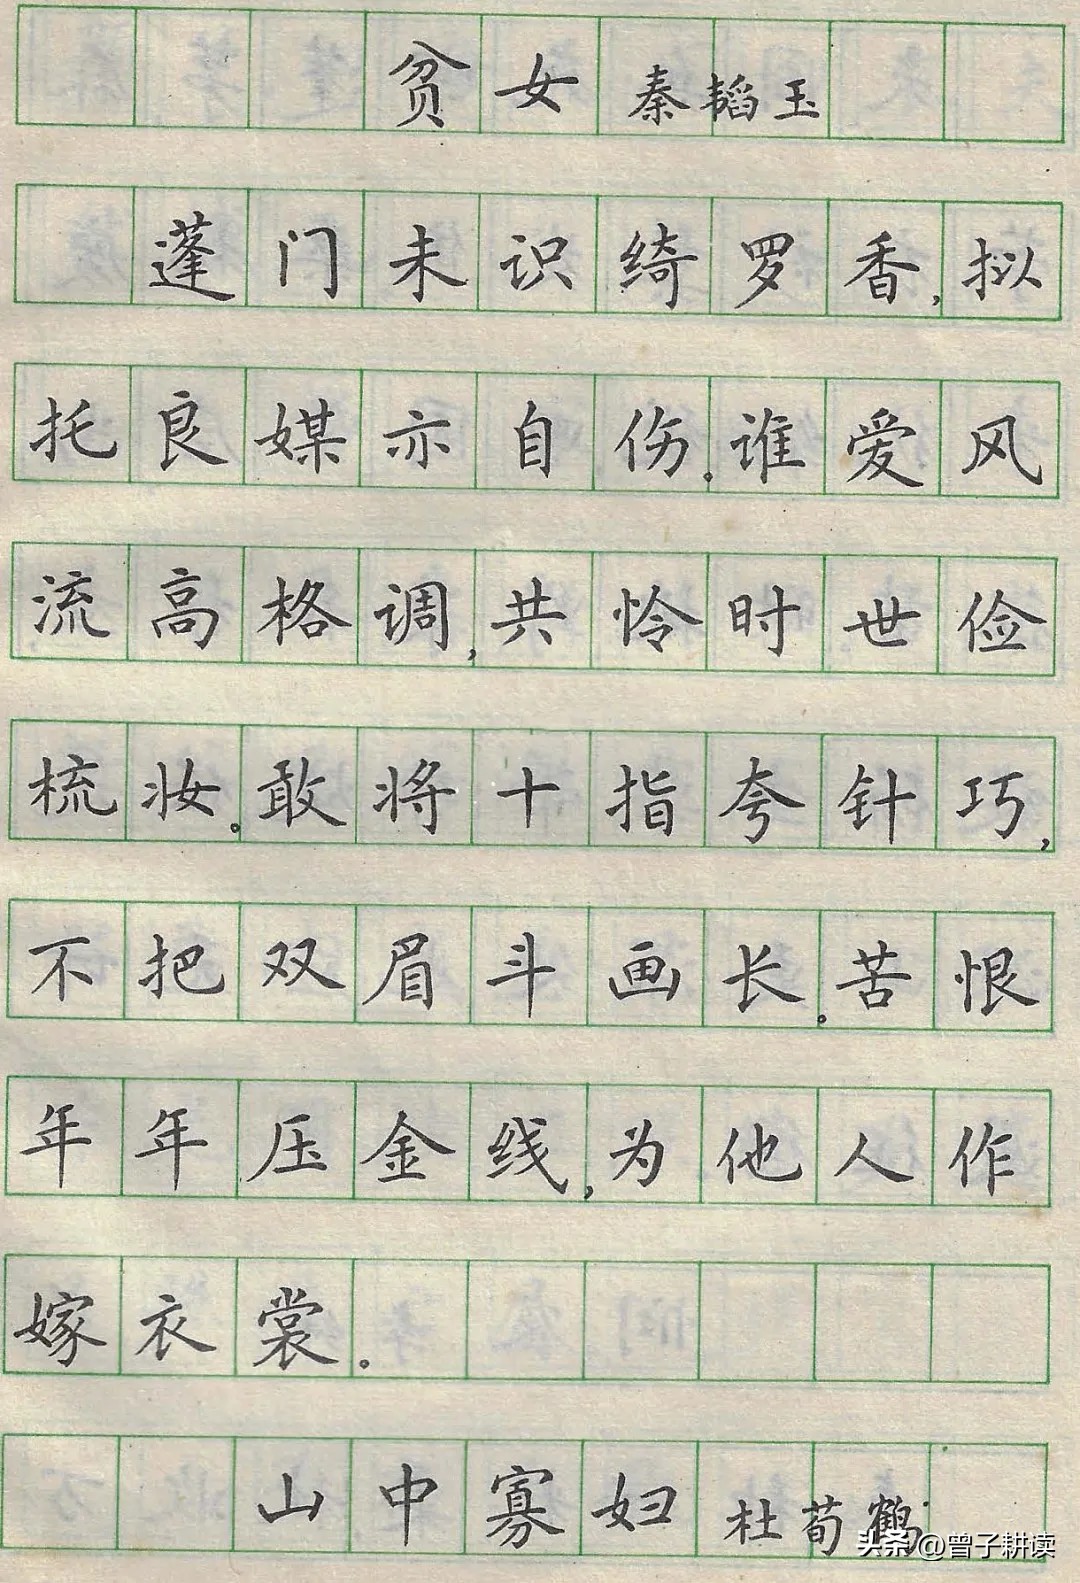 贫女 秦韬玉
蓬门未识绮罗香,拟
托良媒亦自伤。谁爱风
流高格调,共怜时世俭
梳妆。敢将十指夸针巧,
不把双眉斗画长。苦恨
年年压金线,为他人作
嫁衣裳。
山中寡妇 杜荀鹤
头条@曾子耕读